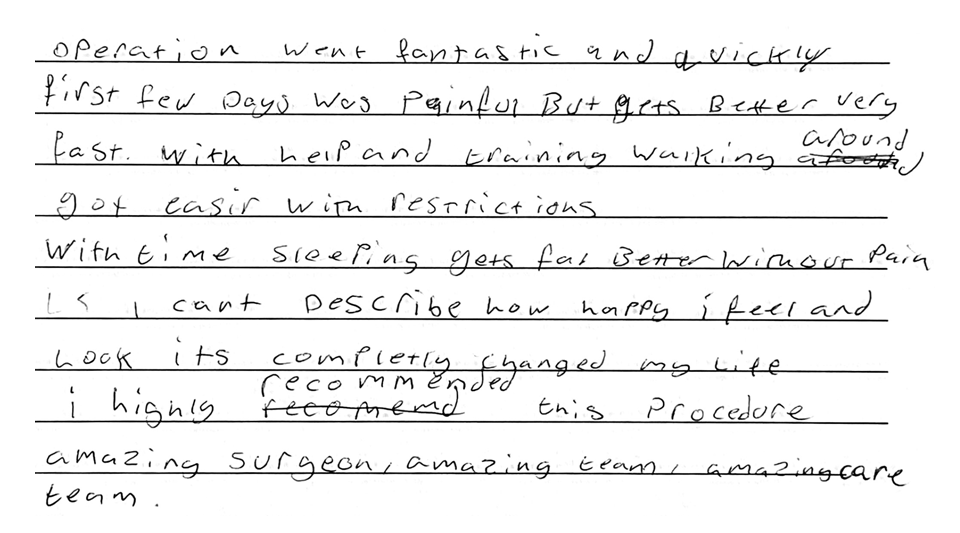 operation went fantastic and quickly
first few Days was Painful But gets Better very
fast. with help and training walking around
got easir with restrictions
With time sleeping gets far Better without Pain
i cant Describe how happy i feel and
look its completly changed my life
i highly recommended this Procedure
amazing surgeon, amazing team, amazing care
team.